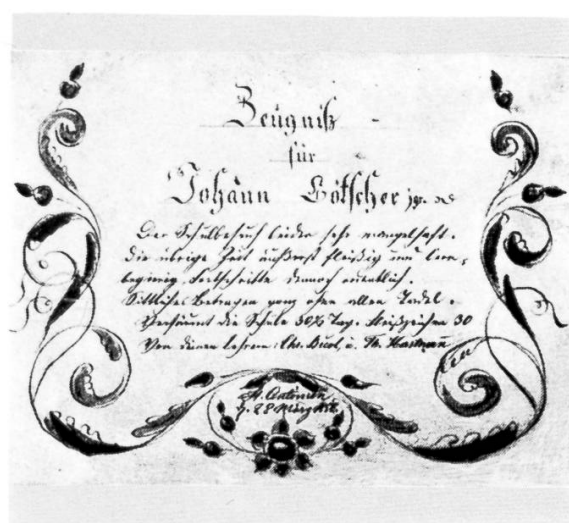 Zeugniß
für
Johann Bötscher jgr.
Der Schulbesuch leider sehr mangelhaft.
Die übrige Zeit äußerst fleißig und lern-
begierig. Fortschritte dennoch ordentlich.
Sittliches Betragen ganz ohne allen Tadel.
Versäumt die Schule 30½ Tag. Fleißzeichen 30
Von deinen Lehrern: Chr. und
St. Antönien
28 März